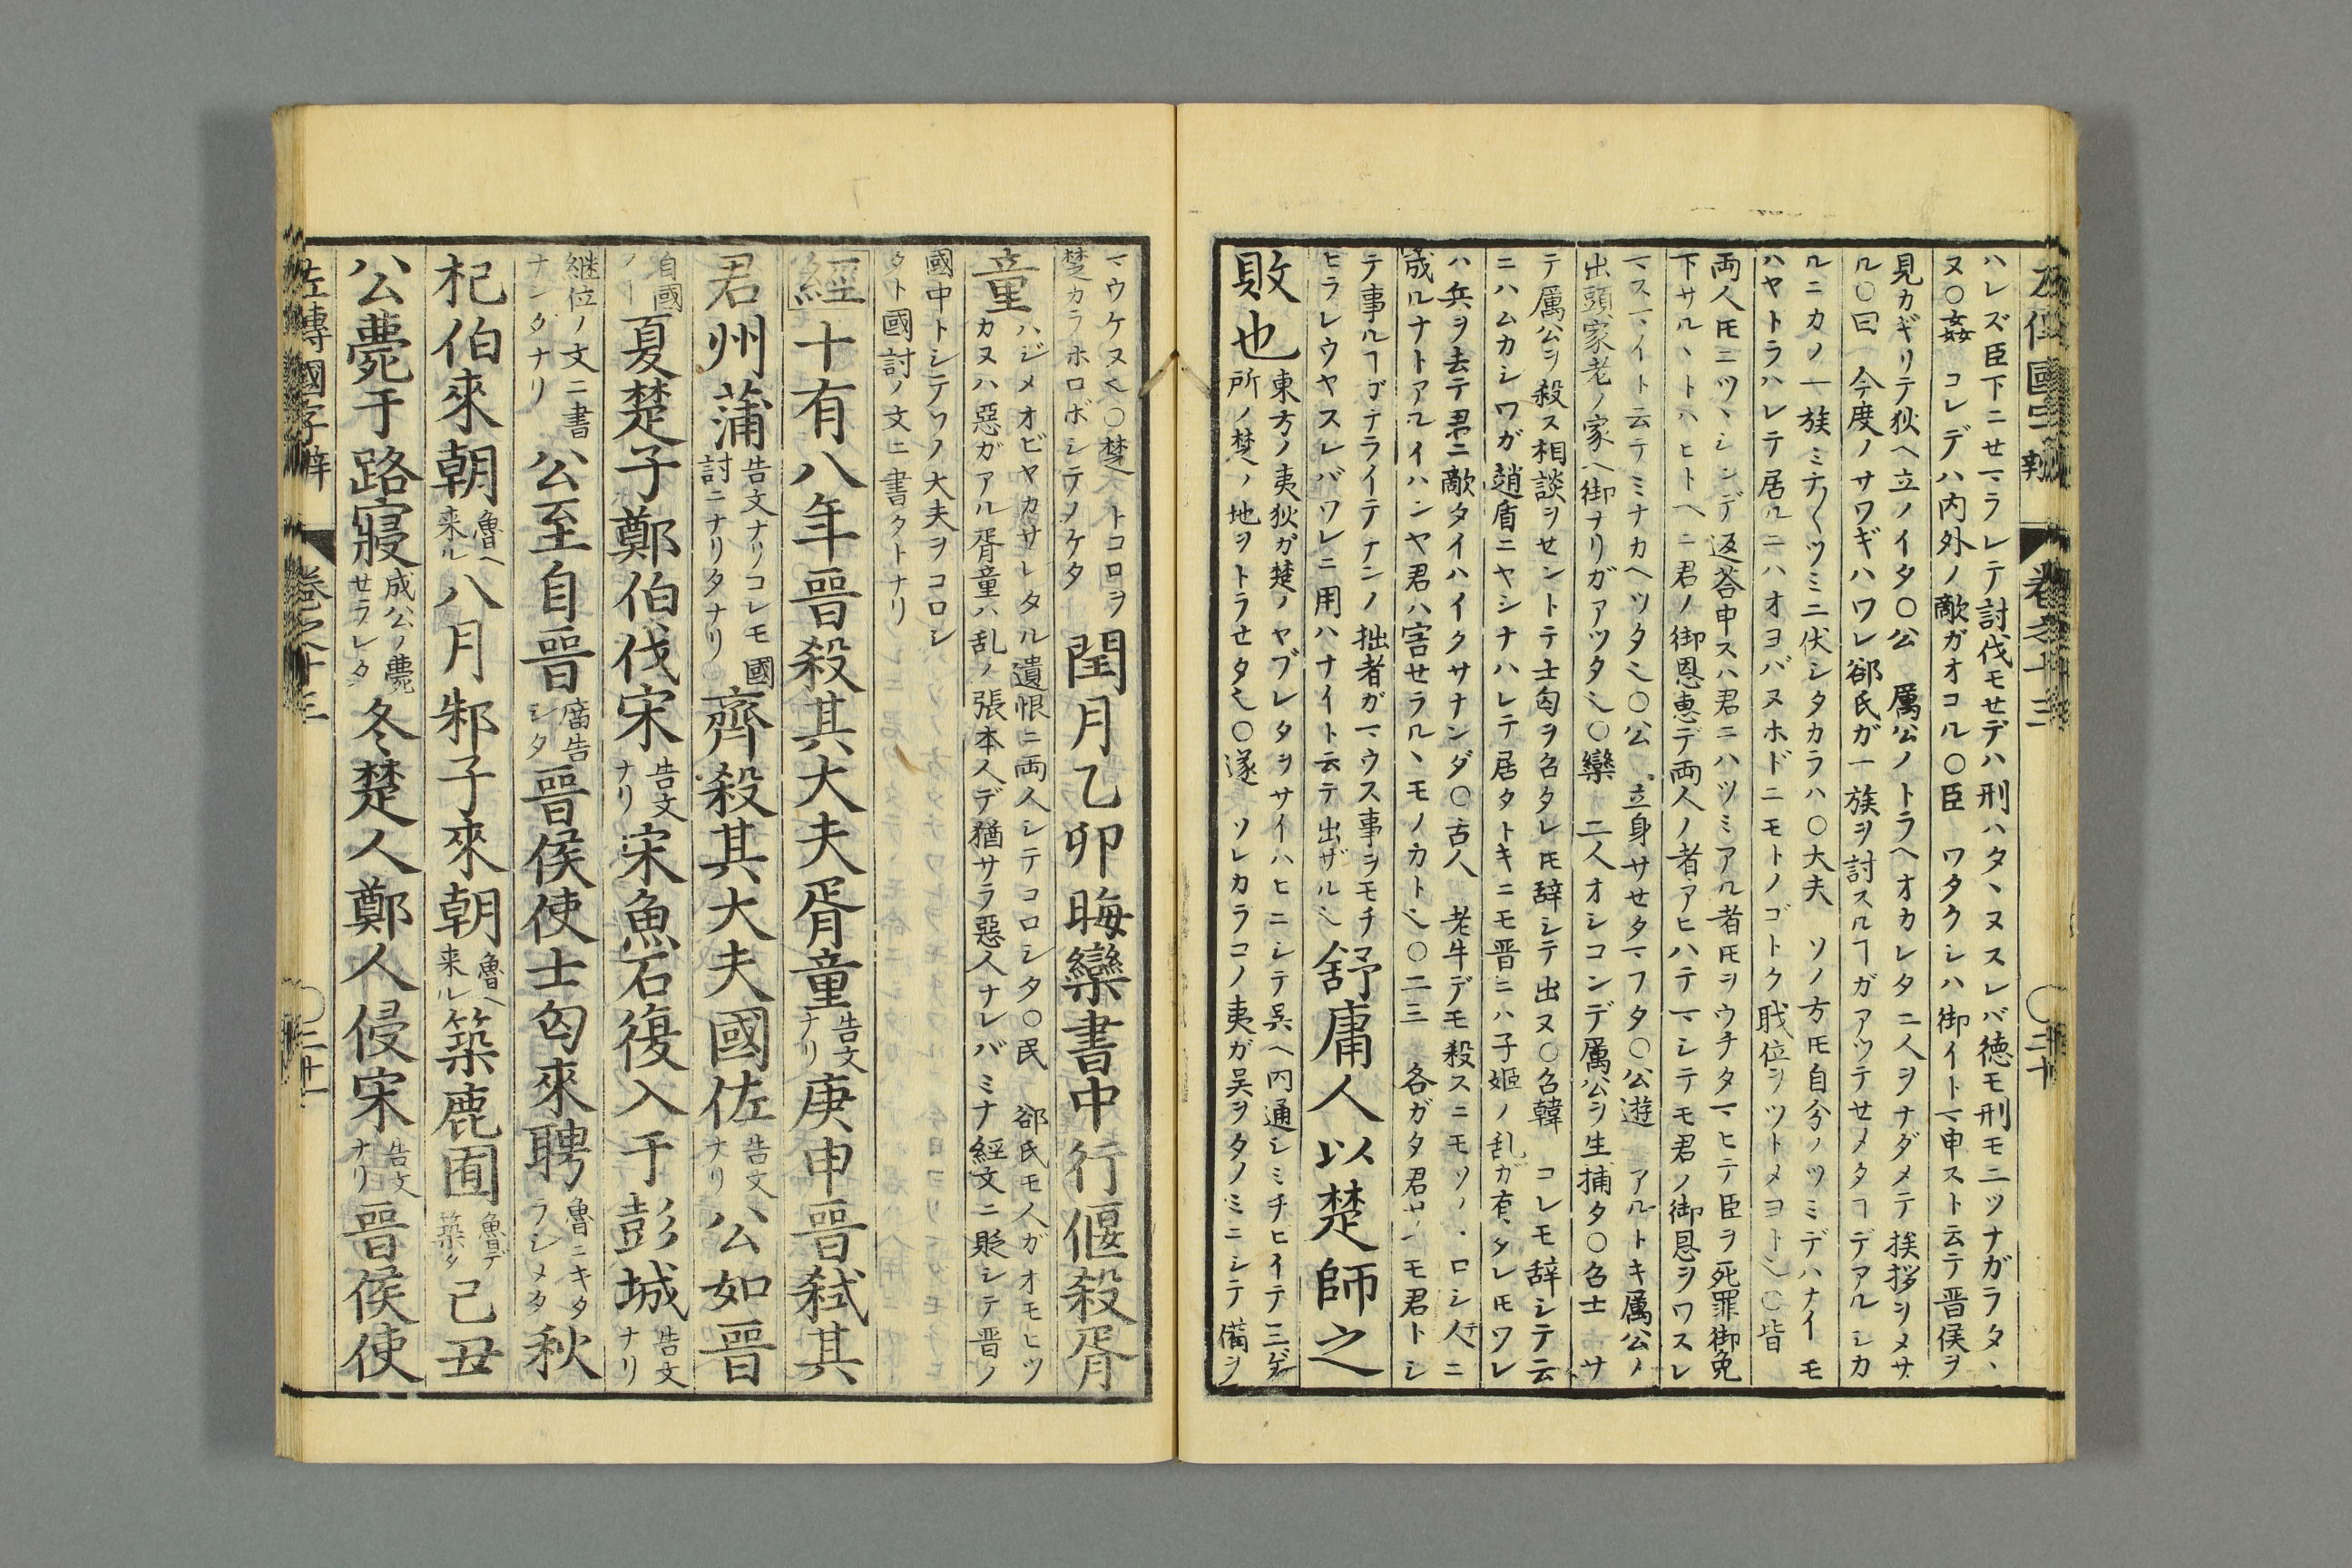 卷之十三 ○三十
ハレズ臣下ニせマラレテ討伐モせデハ刑ハタヽヌスレバ徳モ刑モ二ツナガラタヽ
ヌ○姦 コレデハ内外ノ敵ガオコル○臣 ワタクシハ御イトマ申スト云テ晋侯ヲ
見カギリテ狄ヘ立ノイタ○公 厲公ノトラヘオカレタ二人ヲナダメテ挨拶ヲメサ
ル○曰 今度ノサワギハワレ郤氏ガ一族ヲ討スルヿガアツテせメタヿデアルシカ
ルニカノ一族ミナ〳〵ツミニ伏シタカラハ○大夫 ソノ方𪜈自分ノツミデハナイ モ
ハヤトラハレテ居ルニハオヨバヌホドニモトノゴトク戝位ヲツトメヨト乄○皆
両人𪜈ニツヽシンデ返荅申スハ君ニハツミアル者𪜈ヲウチタマヒテ臣ヲ死罪御免
下サルヽトハヒトヘニ君ノ御恩恵デ両人ノ者アヒハテマシテモ君ノ御恩ヲワスレ
マスマイト云テミナカヘツタ乄○公 立身サせタマフタ○公遊 アルトキ厲公ノ
出頭家老ノ家ヘ御ナリガアツタ乄○欒 二人オシコンデ厲公ヲ生捕タ○召士 サ
テ厲公ヲ殺ス相談ヲせントテ士匄ヲ召タレ𪜈辞シテ出ヌ○召韓 コレモ辞シテ云
ニハムカシワガ趙盾ニヤシナハレテ居タトキニモ晋ニハ子姬ノ乱ガ有タレ𪜈ワレ
ハ兵ヲ去テ君ニ敵タイハイクサナンダ○古人 老牛デモ殺スニモソノ
成ルナトアルイハンヤ君ハ害せラルヽモノカト乄○二三 各ガタ君モ君トシ
テ事ルヿガテライテナンノ拙者ガマウス事ヲモチ
ヒラレウヤスレバワレニ用ハナイト云テ出ザル乄
舒庸人以楚師之
敗也
東方ノ夷狄ガ楚ノヤブレタヲサイハヒニシテ呉ヘ内通シミチヒイテ三
所ノ楚ノ地ヲトラせタ乄○遂 ソレカラコノ夷ガ呉ヲタノミニシテ備ヲ
マウケヌ乄○楚 トコロヲ
楚カラホロボシテノケタ
閏月乙卯晦欒書中行偃殺胥
童
ハジメオビヤカサレタル遺恨ニ両人シテコロシタ○民 郤氏モ人ガオモヒツ
カヌハ惡ガアル胥童ハ乱ノ張本人デ猶サラ惡人ナレバミナ経文ニ貶シテ晋ノ
國中トシテソノ大夫ヲコロシ
タト國討ノ文ニ書タトナリ
經十有八年晋殺其大夫胥童告文ナリ庚申晋弑其
君州蒲告文ナリコレモ國討ニナリタナリ齊殺其大夫國佐告文ナリ公如晋
夏楚子鄭伯伐宋告文ナリ宋魚石復入于彭城告文ナリ
継位ノ文ニ書ナシタナリ公至自晋廣告シタ晋侯使士匄來聘魯ニキタラシメタ秋
杞伯來朝魯ヘ来ル八月邾子來朝魯ヘ来ル築鹿囿魯デ築タ己丑
公薨于路寢成公ノ薨せラレタ冬楚人鄭人侵宋告文ナリ晋侯使
左傳國字解 卷之十三 ○三十一